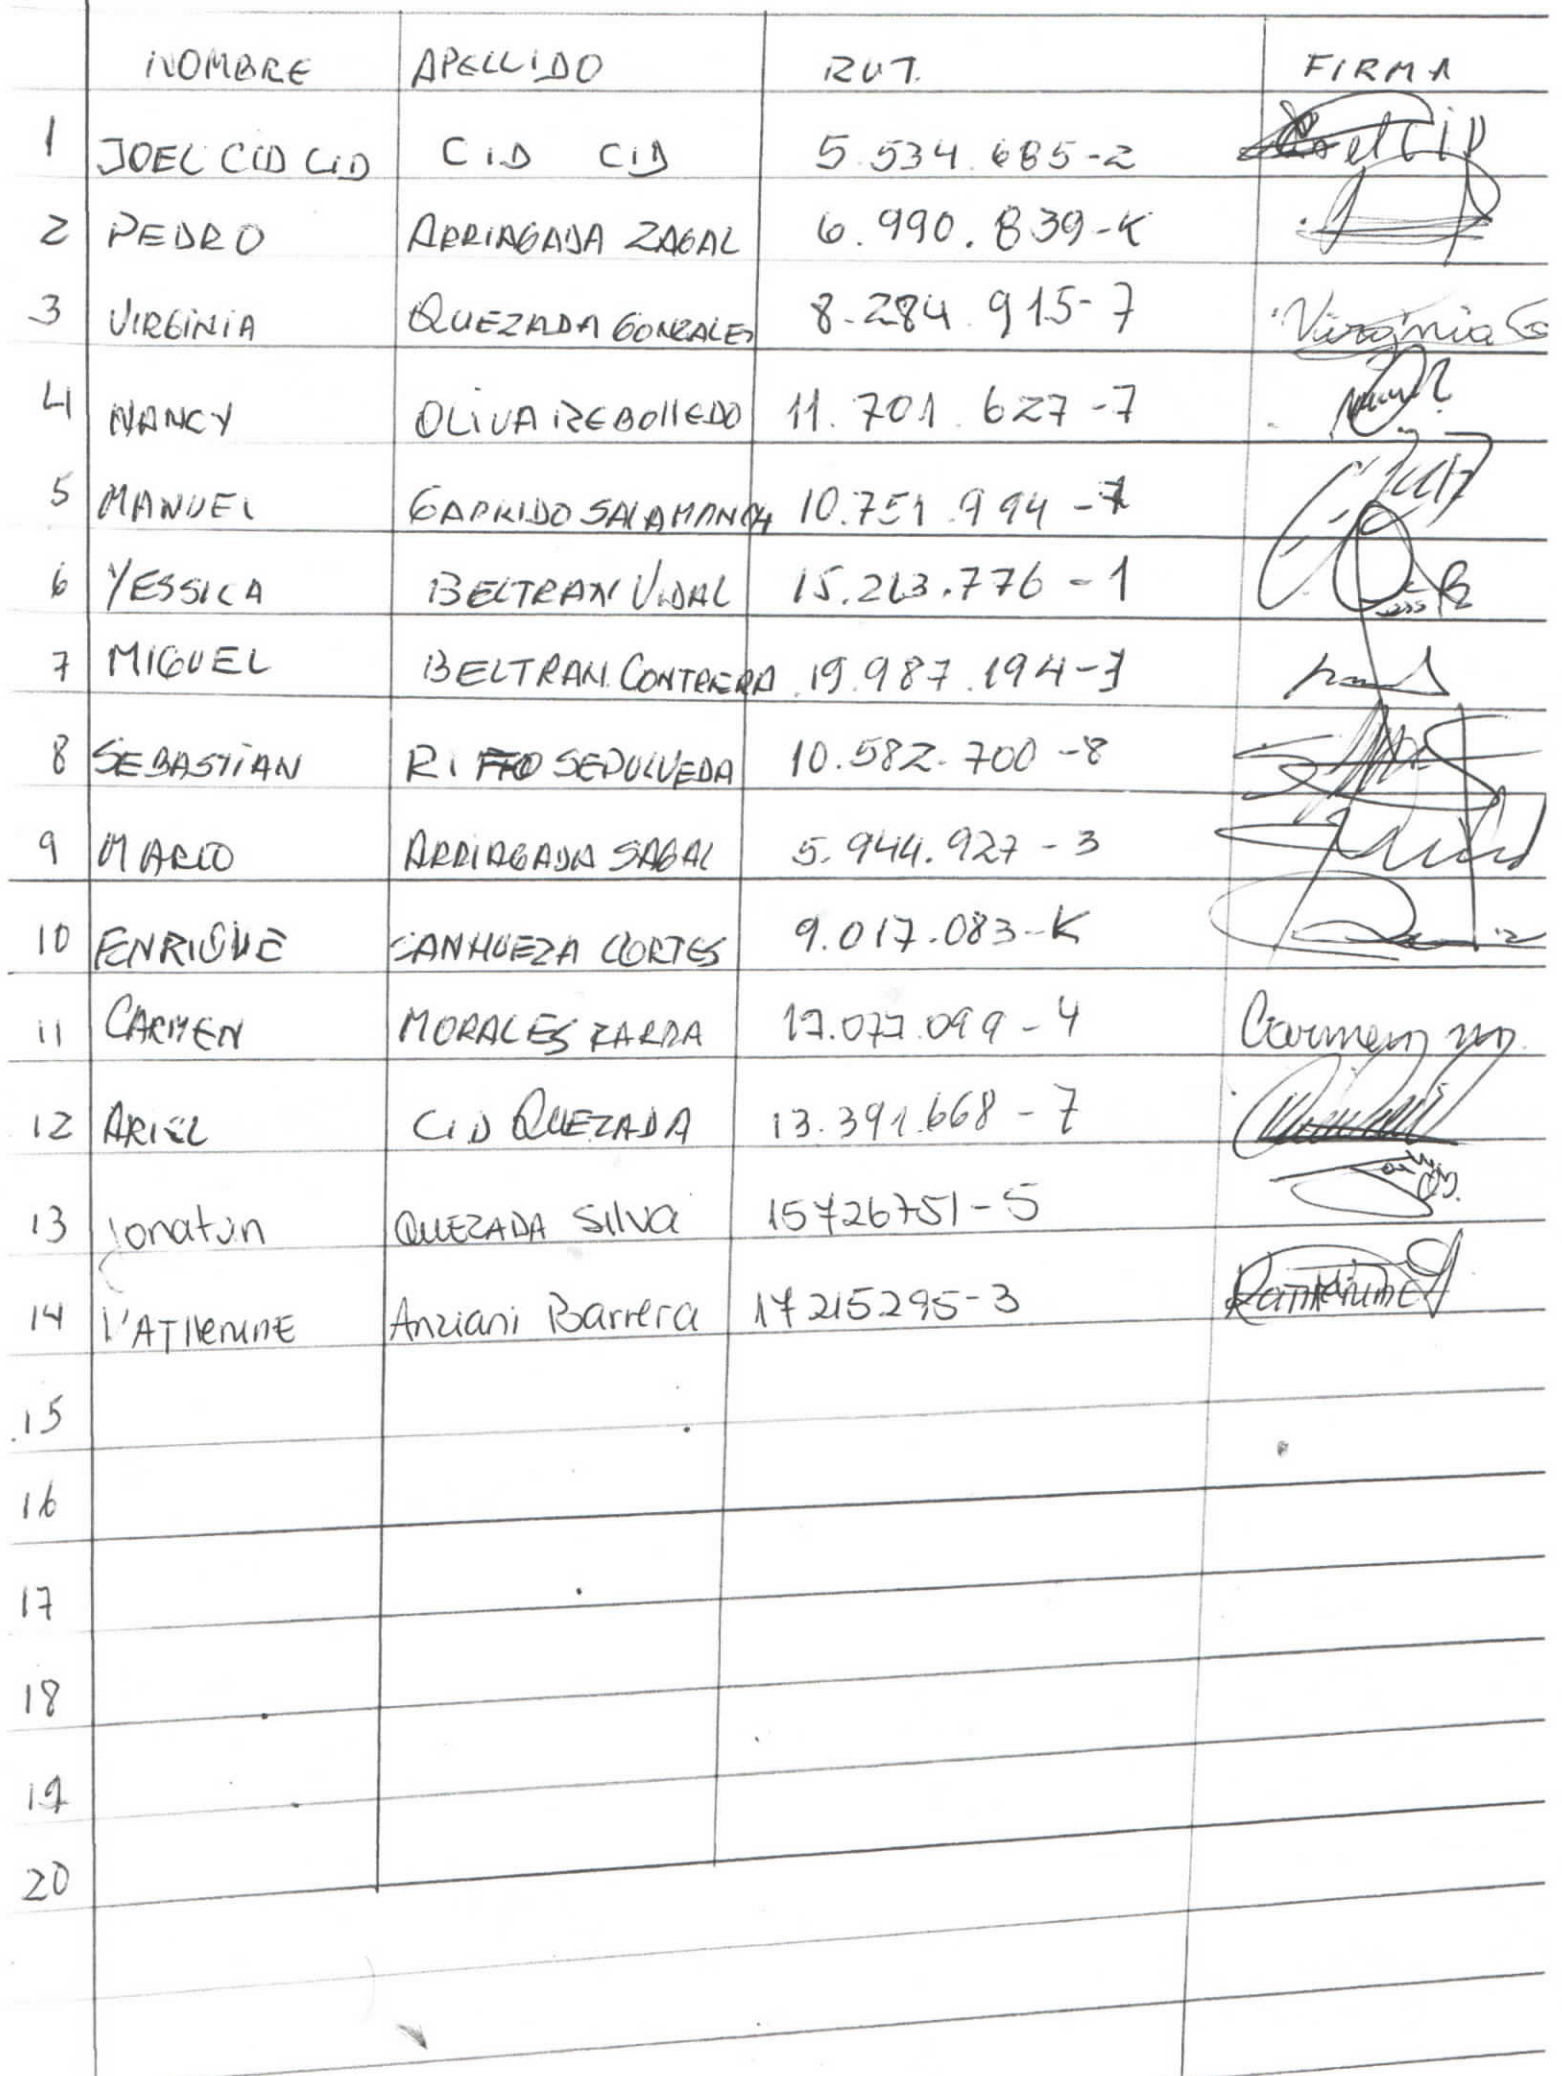 NOMBRE APELLIDO RUT. FIRMA
1 JOEL CID CID CID CID 5.534.685-2 Joel CID
2 PEDRO ARRIAGADA ZAGAL 6.990.839-K
3 VIRGINIA QUEZADA GONZALES 8.284.915-7 Virginia
4 NANCY OLIVA REBOLLEDO 11.701.627-7
5 MANUEL GARRIDO SALAMANCA 10.751.994-7
6 YESSICA BELTRAN VIDAL 15.213.776-1
7 MIGUEL BELTRAN CONTRERA 19.987.194-
8 SEBASTIAN RIFFO SEPULVEDA 10.582.700-8
9 MARIO ARRIAGADA SAGAL 5.944.927-3
10 ENRIQUE SANHUEZA CORTES 9.017.083-K
11 CARMEN MORALES 17.077.099-4 Carmen m.
12 ARIEL CID QUEZADA 13.391.668-7
13 Jonatan QUEZADA Silva 15726751-5
14 KATHERINE Anziani Barrera 17215295-3 KATHERINE
15
16
17
18
19
20